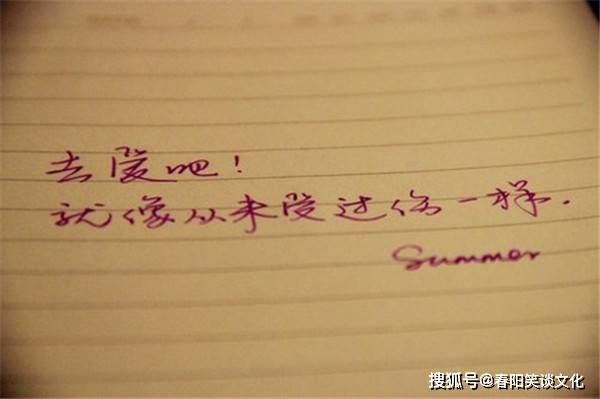 去爱吧！
就像从来受过伤一样.
Summer
搜狐号@春阳笑谈文化